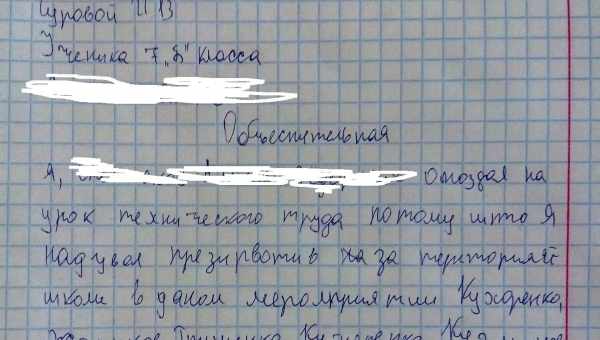 Суровой И В
Ученика 7 „Б" класса
Объеснительная
Я, опоздал на
урок технического труда потому што Я
надувал презирвотив за територией
школи в даном мероприятии Кухаренко,